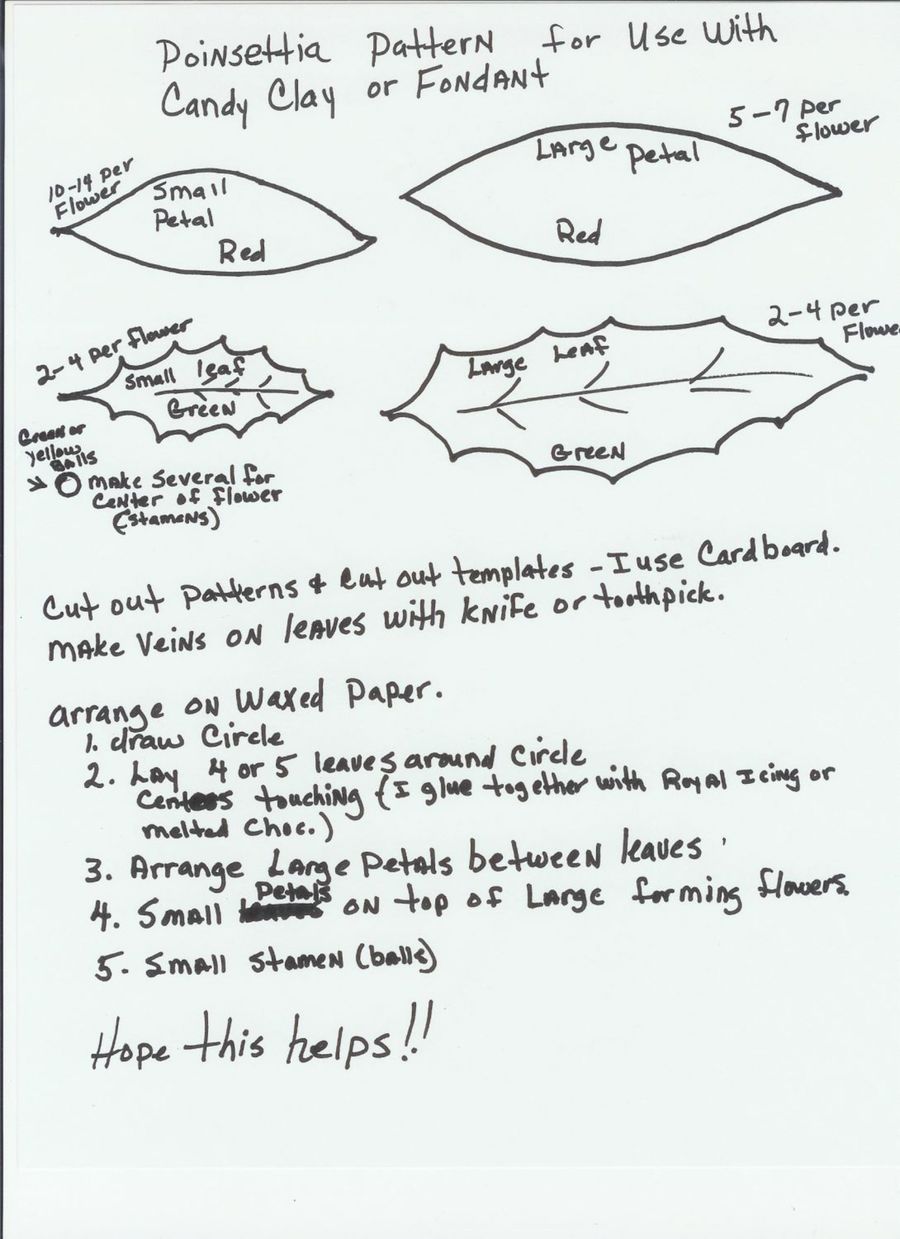 Poinsettia Pattern for Use With
Candy Clay or Fondant
10-14 per
Flower
Small
Petal
Red
5-7 per
flower
Large Petal
Red
2-4 per flower
Small leaf
Green
2-4 per
Flowe
Large Leaf
Green
Green or
Yellow
Balls
make several for
center of flower
(stamens)
Cut out patterns & cut out templates - I use Cardboard.
make veins on leaves with knife or toothpick.
arrange on Waxed Paper.
1. draw Circle
2. Lay 4 or 5 leaves around Circle
Centers touching (I glue together with Royal Icing or
melted Choc.)
3. Arrange Large Petals between leaves
4. Small Petals on top of Large forming flowers.
5. Small Stamen (balls)
Hope this helps!!